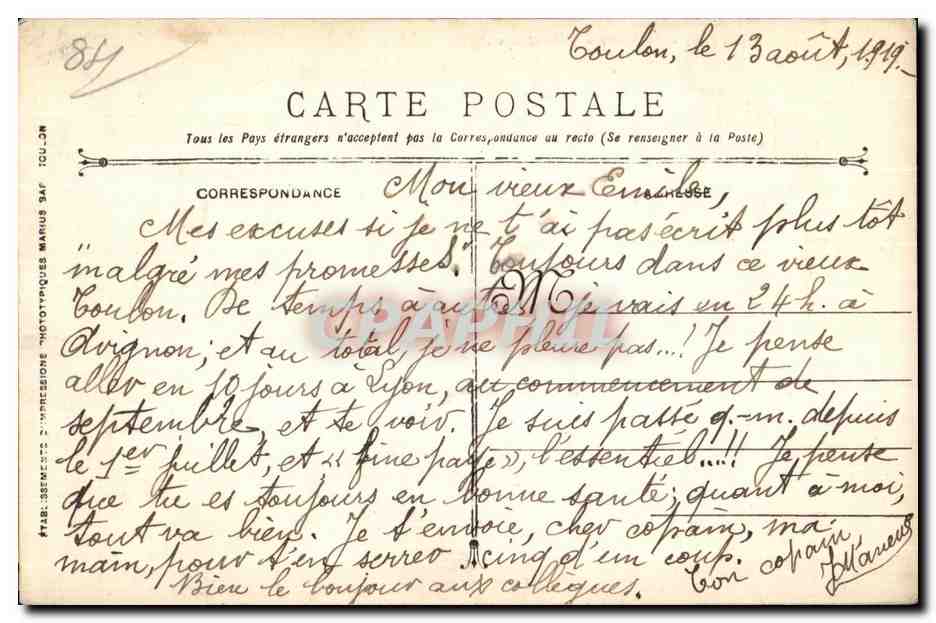 84
Toulon, le 13 août, 1919.
CARTE POSTALE
Tous les Pays étrangers n'acceptent pas la Correspondance au recto (Se renseigner à la Poste)
CORRESPONDANCE
ADRESSE
Mon vieux Emile,
Mes excuses si je ne t'ai pas écrit plus tôt
"malgré mes promesses." Toujours dans ce vieux
Toulon. De temps à autres je vais en 24 h. à
Avignon; et au total, je ne pleure pas...! Je pense
aller en 10 jours à Lyon, au commencement de
septembre, et te voir. Je suis passé q.-m. depuis
le 1er juillet, et « fine paye », l'essentiel....!! Je pense
que tu es toujours en bonne santé; quant à moi,
tout va bien. Je t'envoie, cher copain, ma
main, pour t'en serrer cinq d'un coup.
Ton copain,
Bien le bonjour aux collègues.
M
CPAPHIL
ÉTABLISSEMENTS D'IMPRESSIONS PHOTOTYPIQUES MARIUS BAR TOULON